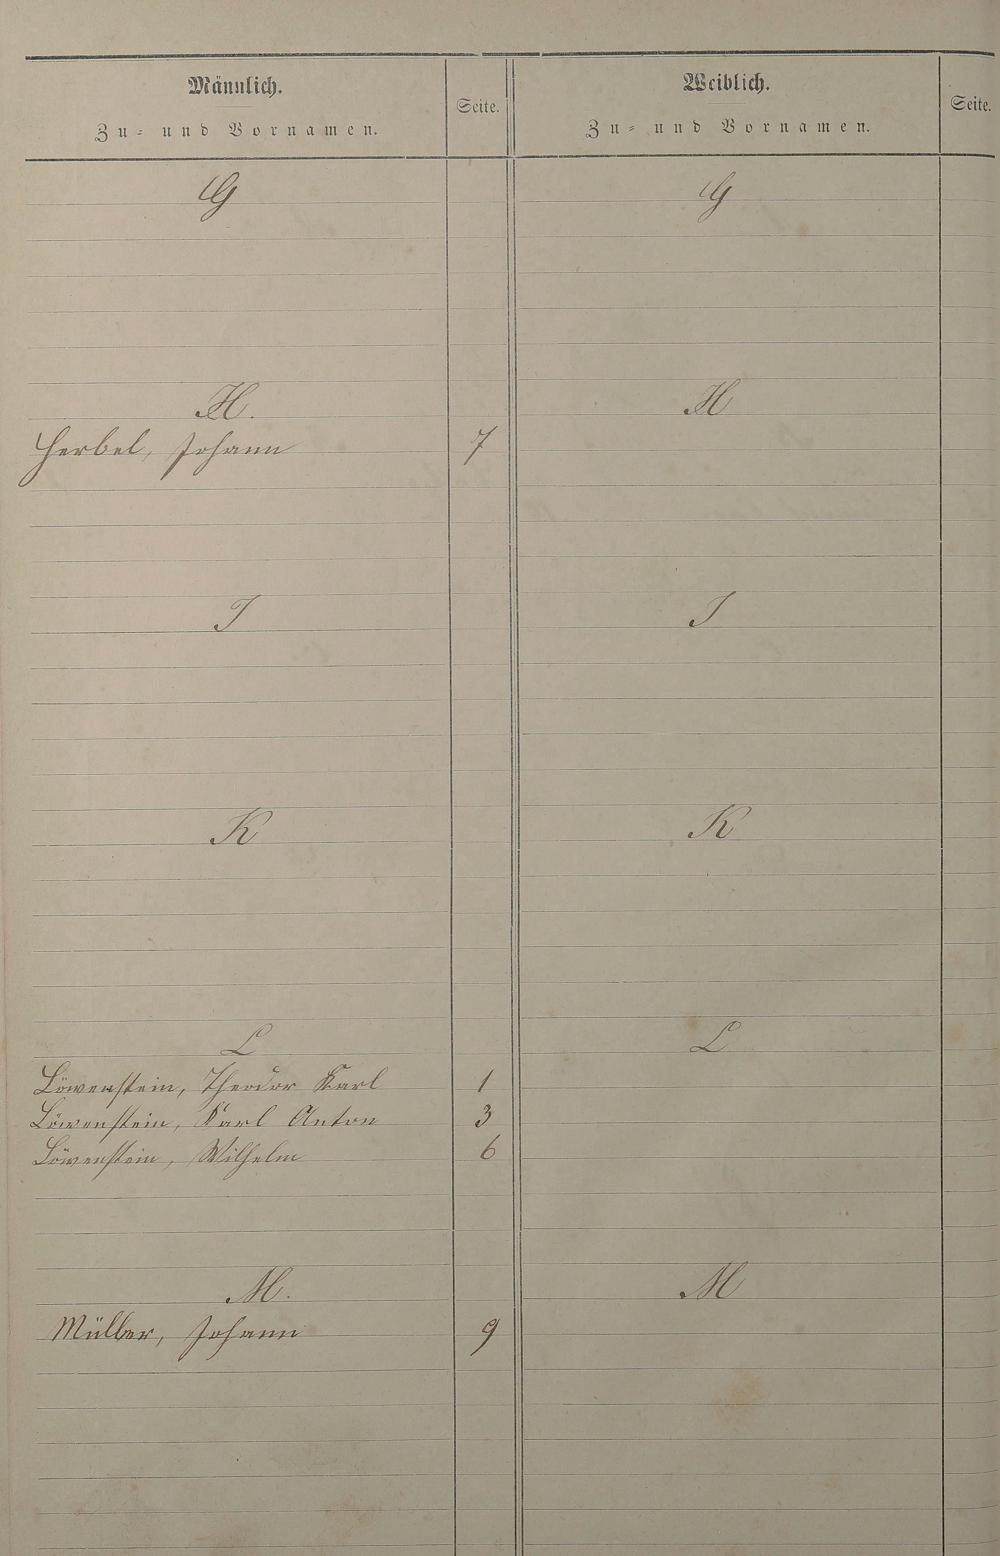 Männlich.
Zu- und Vornamen.
Seite.
Weiblich.
Zu- und Vornamen.
Seite.
G
G
H.
H
Herbel, Johann 7
I
I
K
K
L
L
Löwenstein, Theodor Karl 1
Löwenstein, Karl Anton 3
Löwenstein, Wilhelm 6
M.
M
Müller, Johann 9